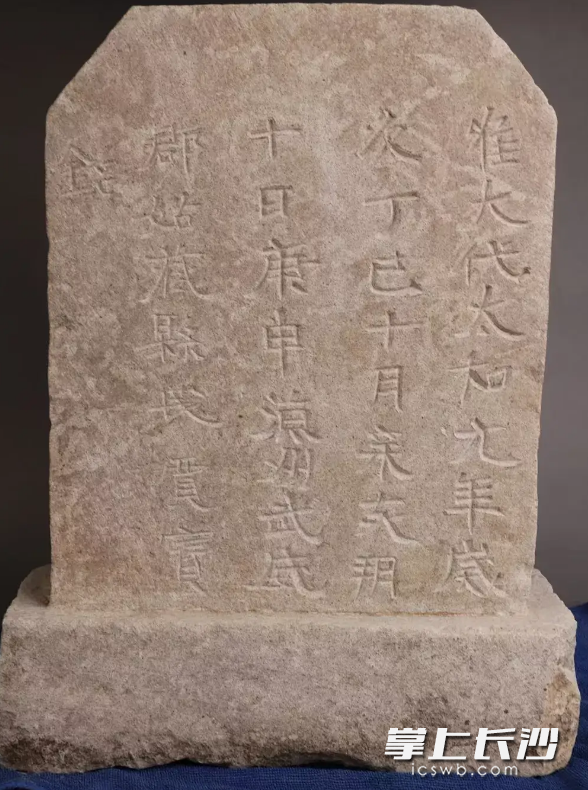 惟大代太和元年歲
次丁巳十月辛亥朔
十日庚申涼州武威
郡姑藏縣民賈寶
銘
掌上长沙
icswb.com